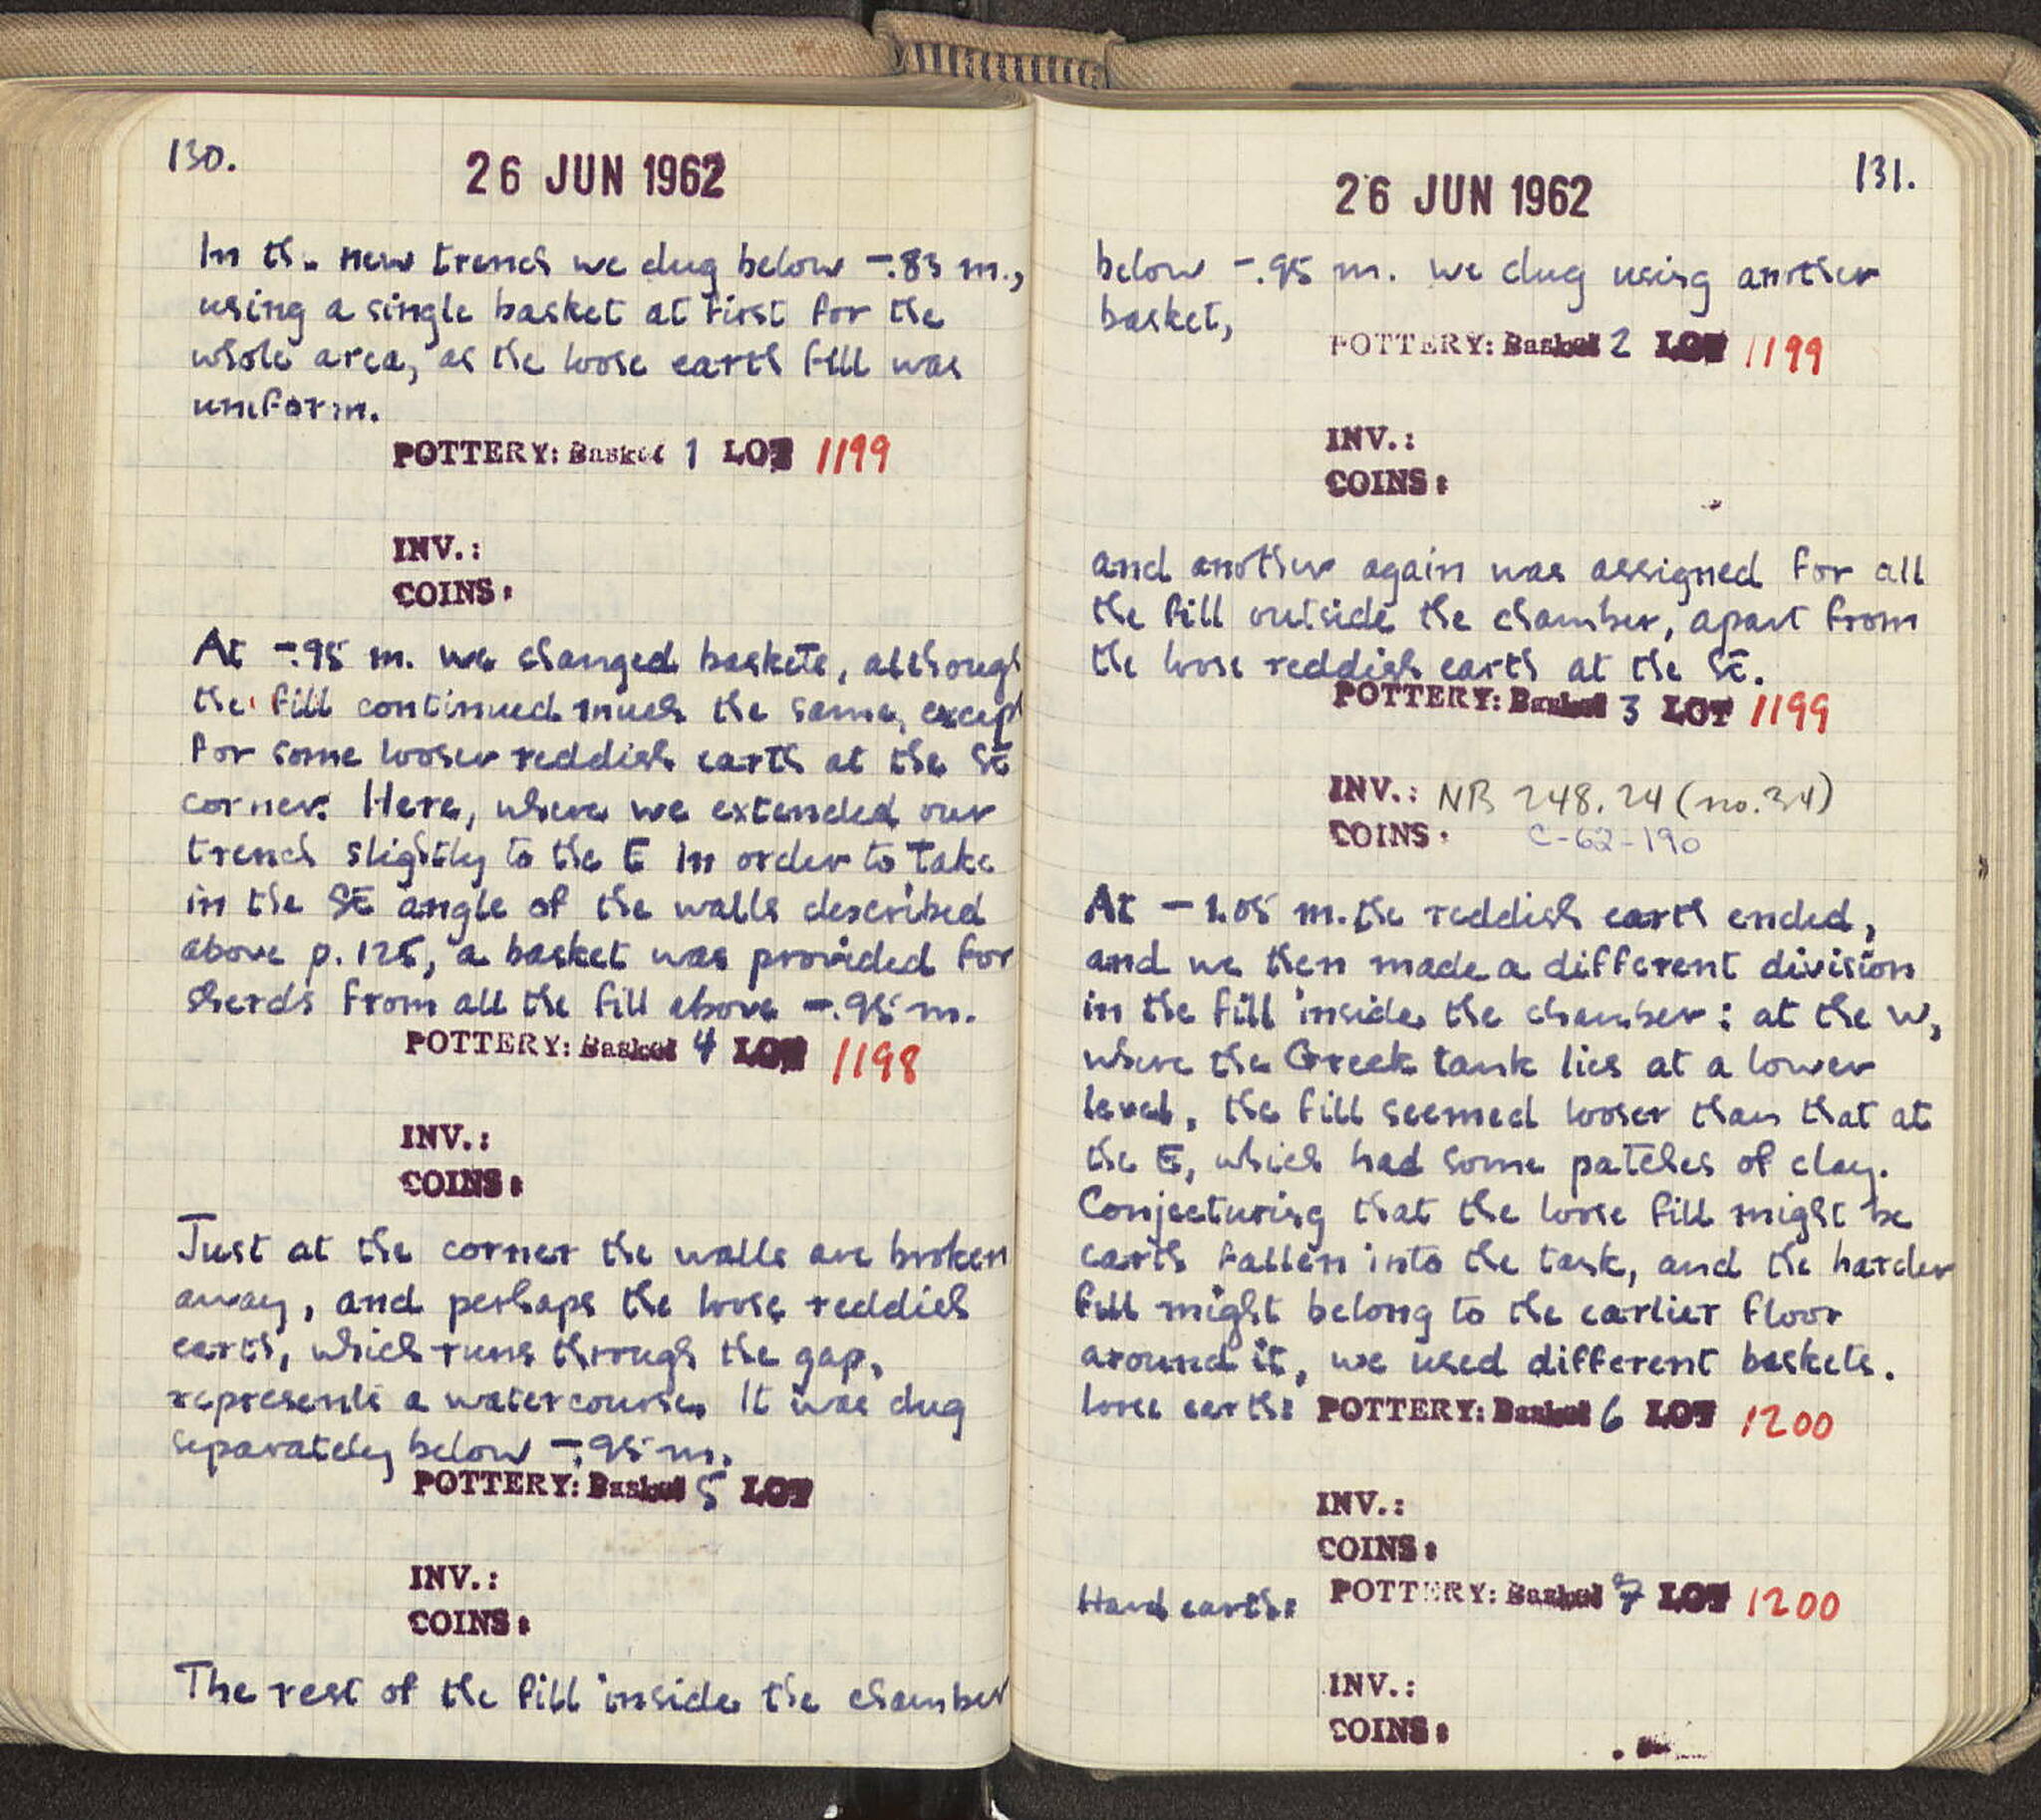 130.
26 JUN 1962
In the new trench we dug below -.83 m.,
using a single basket at first for the
whole area, as the loose earth fill was
uniform.
POTTERY: Basket 1 LOT 1199
INV.:
COINS:
At -.95 m. we changed baskets, although
the fill continued much the same, except
for some looser reddish earth at the SE
corner. Here, where we extended our
trench slightly to the E in order to take
in the SE angle of the walls described
above p. 125, a basket was provided for
sherds from all the fill above -.95 m.
POTTERY: Basket 4 LOT 1198
INV.:
COINS:
Just at the corner the walls are broken
away, and perhaps the loose reddish
earth, which runs through the gap,
represents a watercourse. It was dug
separately below -.95 m.
POTTERY: Basket 5 LOT
INV.:
COINS:
The rest of the fill inside the chamber
131.
26 JUN 1962
below -.95 m. we dug using another
basket,
POTTERY: Basket 2 LOT 1199
INV.:
COINS:
and another again was assigned for all
the fill outside the chamber, apart from
the loose reddish earth at the SE.
POTTERY: Basket 3 LOT 1199
INV.: NB 248.24 (no.34)
COINS: C-62-190
At -1.05 m. the reddish earth ended,
and we then made a different division
in the fill inside the chamber: at the W,
where the Greek tank lies at a lower
level, the fill seemed looser than that at
the E, which had some patches of clay.
Conjecturing that the loose fill might be
earth fallen into the tank, and the harder
fill might belong to the earlier floor
around it, we used different baskets.
Loose earth: POTTERY: Basket 6 LOT 1200
INV.:
COINS:
Hard earth: POTTERY: Basket 7 LOT 1200
INV.:
COINS: